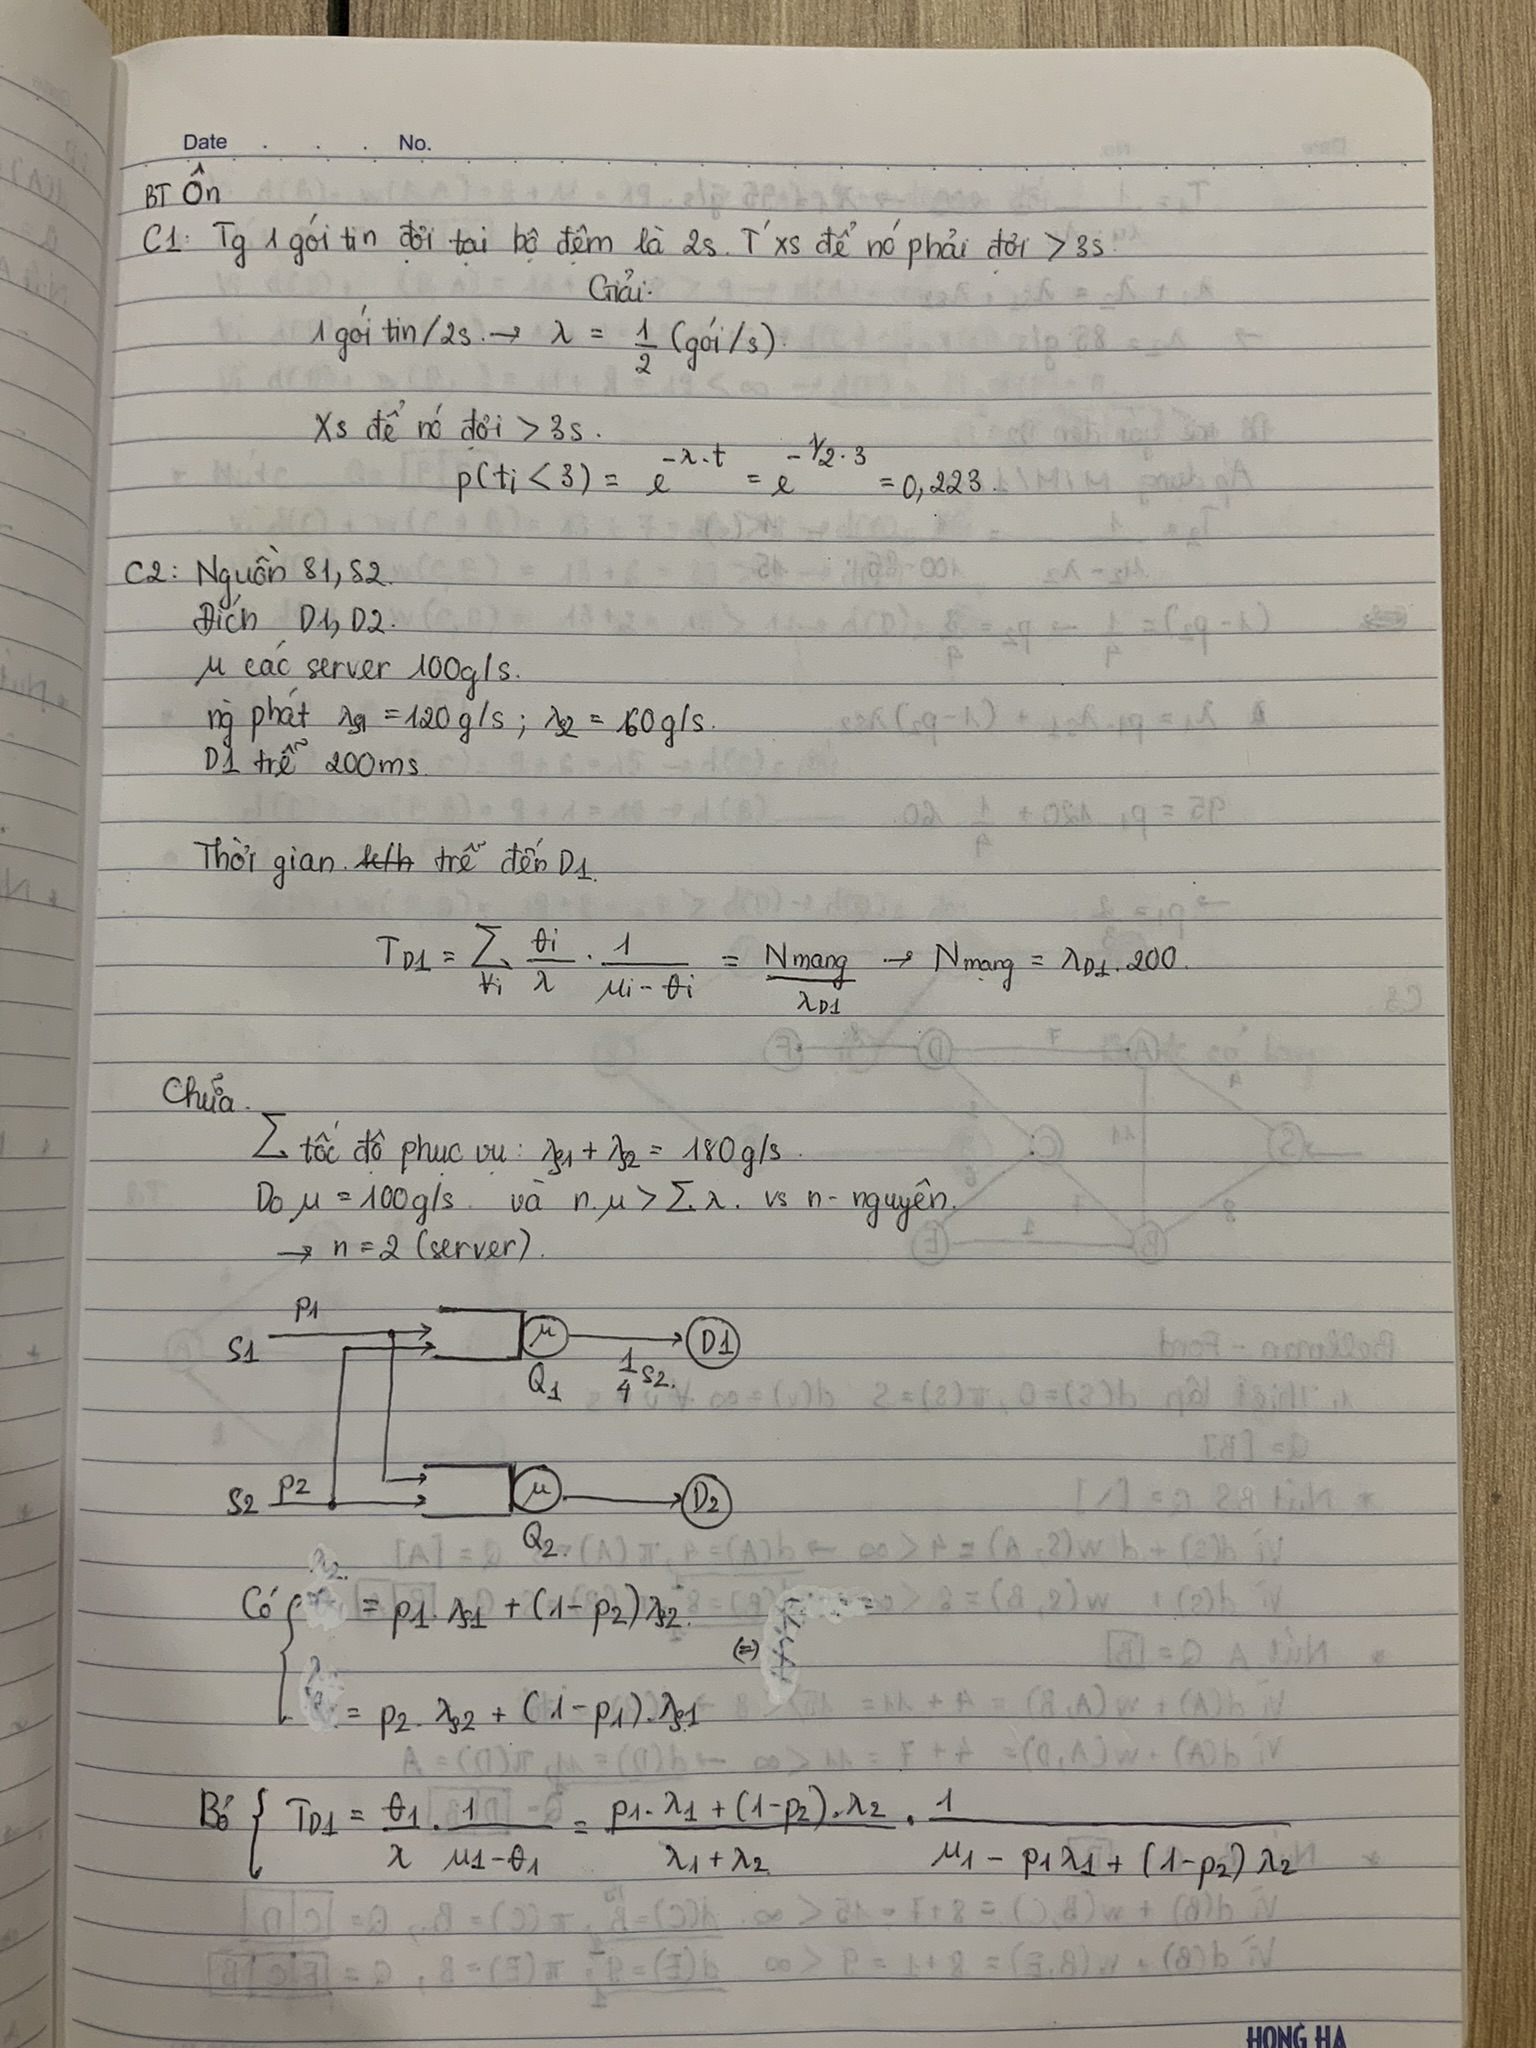 Date . . . No.
BT Ôn
C1: Tg 1 gói tin đợi tại bộ đệm là 2s. T' xs để nó phải đợi > 3s.
Giải:
1 gói tin/2s → λ = 1/2 (gói/s).
Xs để nó đợi > 3s.
p(ti < 3) = e^(-λ.t) = e^(-1/2.3) = 0,223.
C2: Nguồn S1, S2.
Đích D1, D2.
μ các server 100g/s.
ng phát λs1 = 120g/s; λs2 = 60g/s.
D1 trễ 200ms
Thời gian trễ đến D1.
T_D1 = Σ_∀i θi/λ . 1/(μi - θi) = Nmạng/λ_D1 → Nmạng = λ_D1.200.
Chữa.
Σ tốc độ phục vụ: λs1 + λs2 = 180g/s.
Do μ = 100g/s và n.μ > Σ.λ. vs n - nguyên.
→ n = 2 (server).
p1
S1 μ D1
Q1 1/4 S2.
p2
S2 μ D2
Q2.
Có { λ2 = p1. λs1 + (1-p2) λs2.
(=)
λ = p2. λs2 + (1-p1).λs1
Bỏ { T_D1 = θ1/λ . 1/(μ1-θ1) = (p1.λ1 + (1-p2).λ2)/(λ1+λ2) . 1/(μ1 - p1λ1 + (1-p2) λ2)
HONG HA